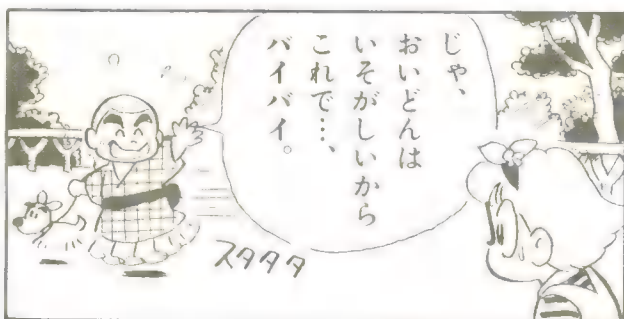 じゃ、
おいどんは
いそがしいから
これで…、
バイバイ。
スタタタ